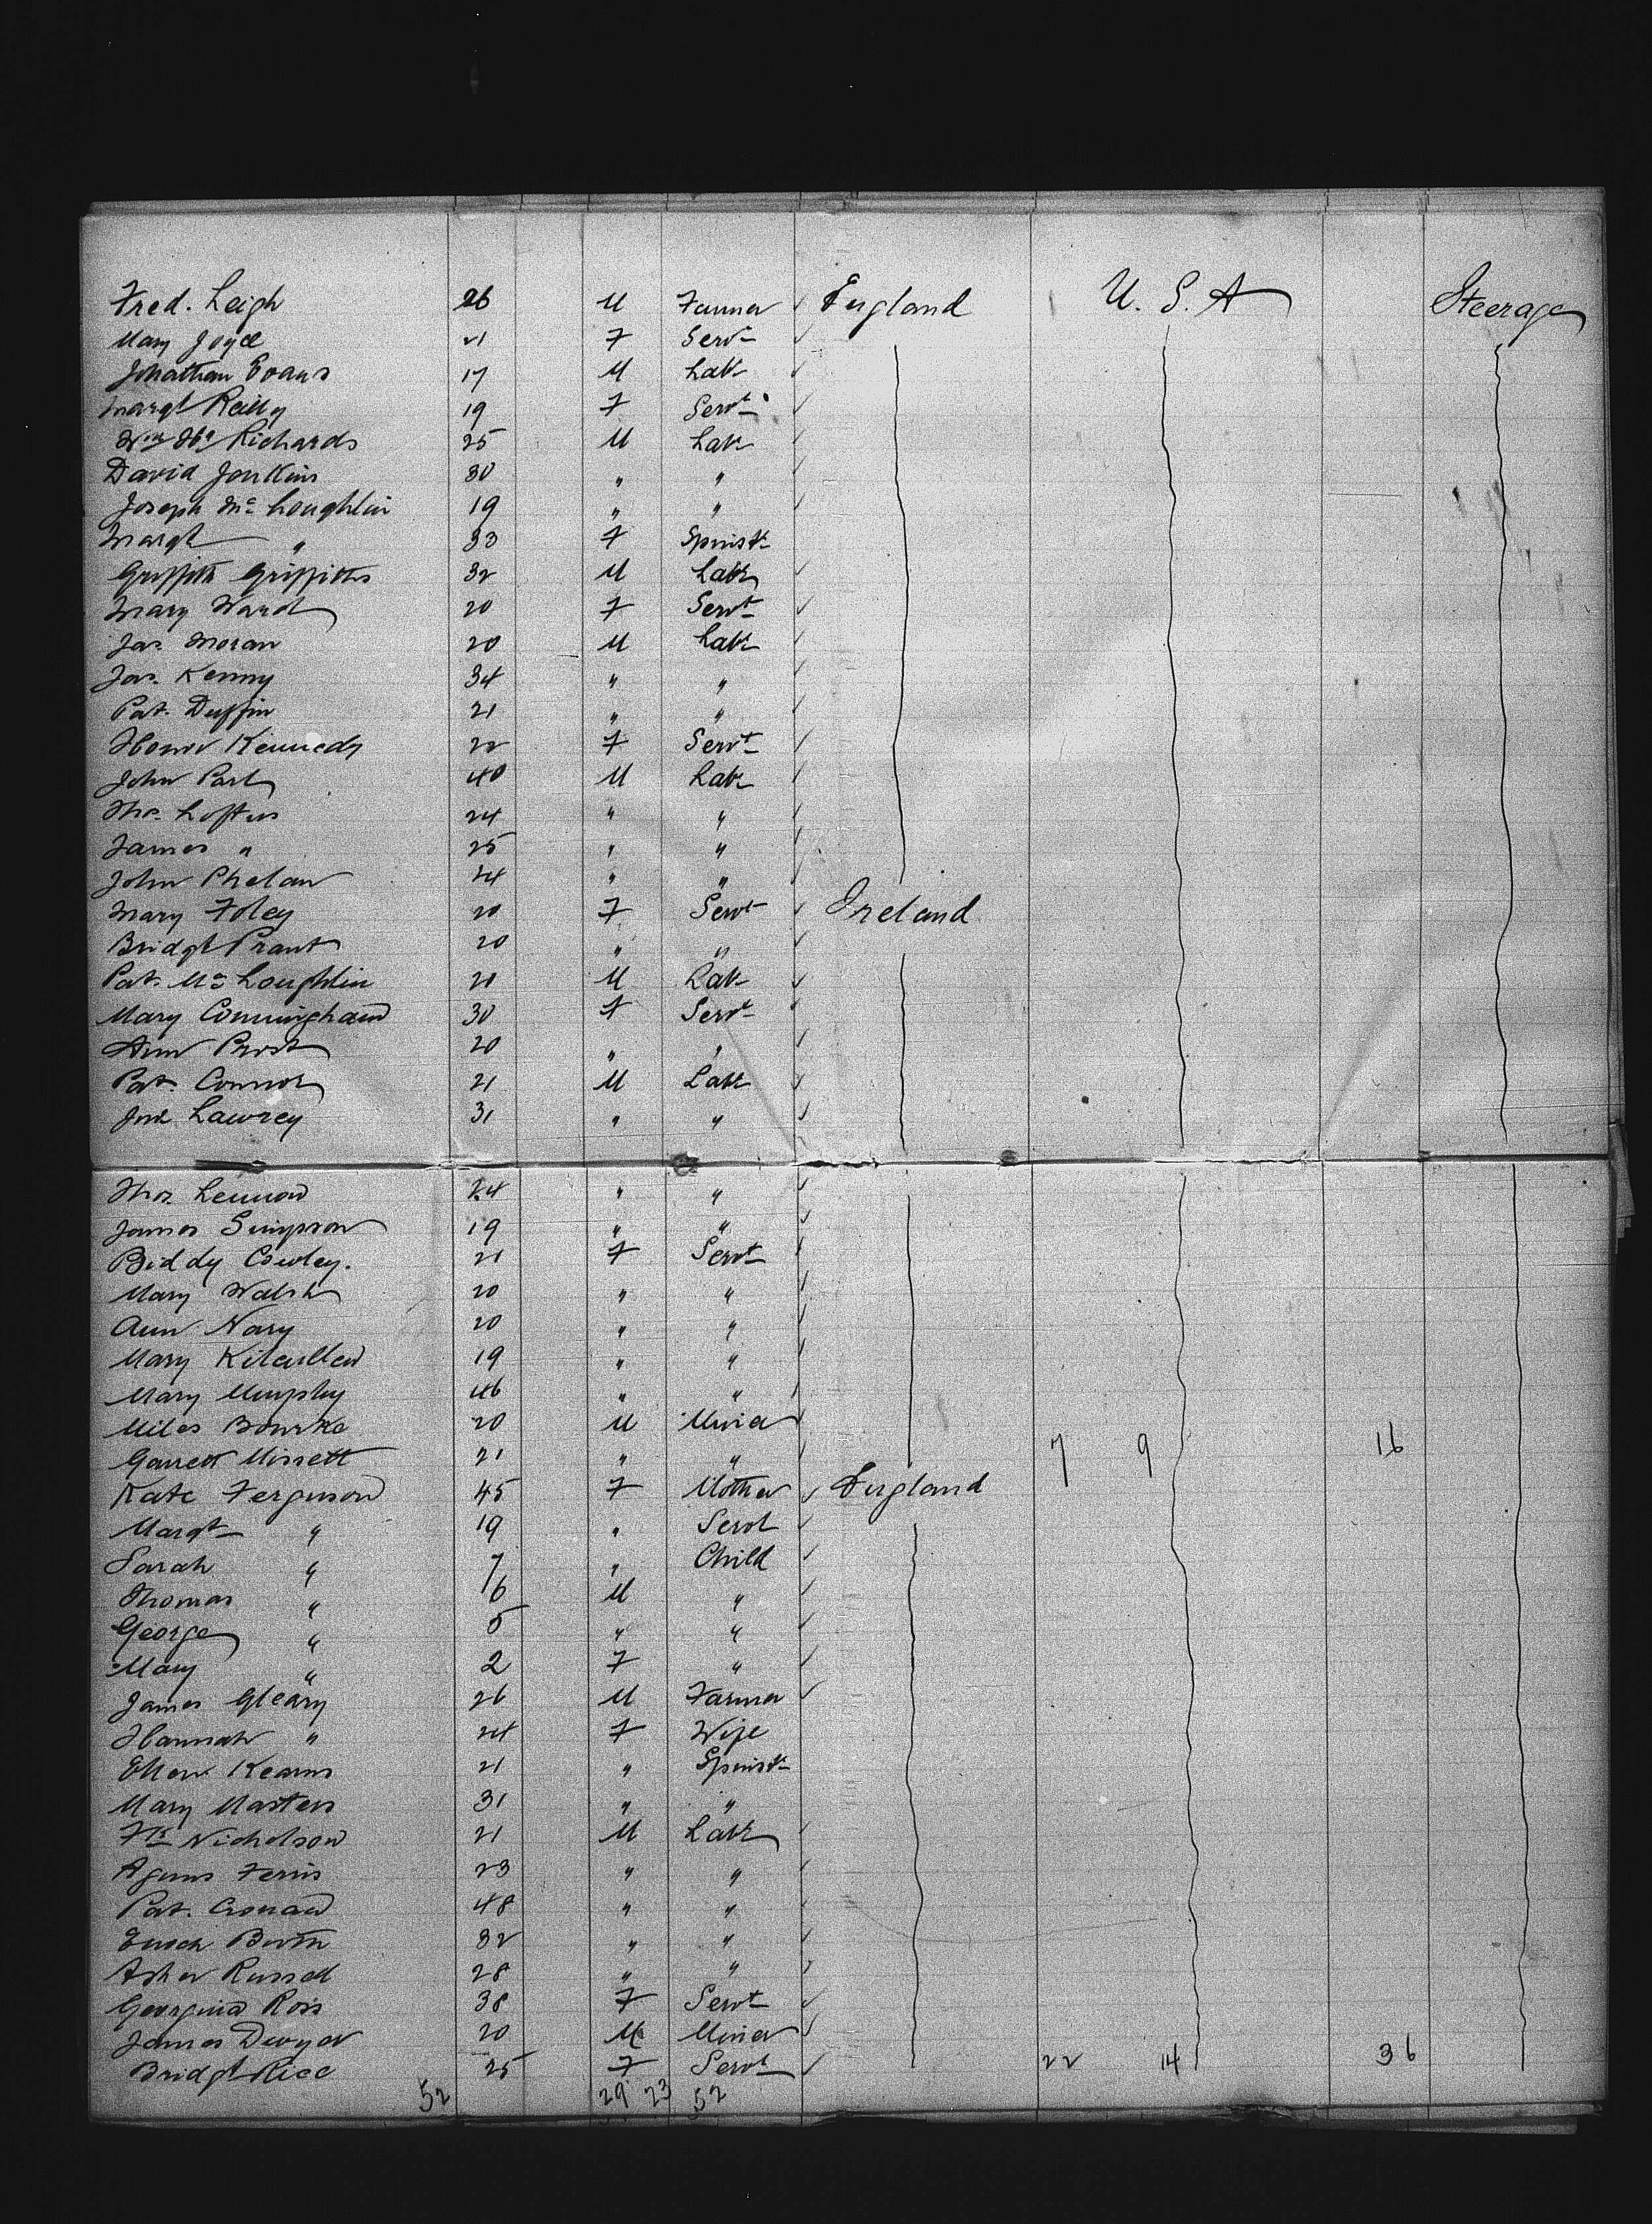 Fred. Leigh 26 M Farmer ✓ England U. S. A Steerage
Mary Joyce 21 F Servt ✓
Jonathan Evans 17 M Labr ✓
Margt Reilly 19 F Servt ✓
Wm Hy Richards 25 M Labr ✓
David Jenkins 30 " " ✓
Joseph McLoughlin 19 " " ✓
Margt " 33 F Spinstr
Griffith Griffiths 32 M Labr ✓
Mary Ward 20 F Servt ✓
Jas. Moran 20 M Labr ✓
Jas. Kenny 34 " " ✓
Pat. Duffin 21 " " ✓
Honor Kennedy 22 F Servt ✓
John Part 40 M Labr ✓
Thos. Loftus 24 " " ✓
James " 25 " " ✓
John Phelan 24 " " ✓
Mary Foley 20 F Servt ✓ Ireland
Bridgt 20 " " ✓
Pat. McLoughlin 20 M Labr ✓
Mary Conningham 30 F Servt ✓
Ann 20 " " ✓
Pat. Connor 21 M Labr ✓
Jno Lawrey 31 " " ✓
Thos. Lennon 24 " " ✓
James Simpson 19 " " ✓
Biddy Cowley. 21 F Servt ✓
Mary Walsh 20 " " ✓
Ann Nary 20 " " ✓
Mary Kilcullen 19 " " ✓
Mary Murphy 46 " " ✓
Miles Bourke 20 M Miner ✓
Garrett Missett 21 " " ✓ 7 9 16
Kate Ferguson 45 F Mother ✓ England
Margt " 19 " Servt ✓
Sarah " 7 " Child ✓
Thomas " 6 M " ✓
George " 5 " " ✓
Mary " 2 F " ✓
James Gleary 26 M Farmer ✓
Hannah " 24 F Wife
Ellen Kearns 21 " Spinstr
Mary Masters 31 " "
Nicholson 21 M Labr ✓
Ferris 23 " " ✓
Pat. Cronan 48 " " ✓
Enoch 32 " " ✓
Asher Russell 28 " " ✓
Georgina Ross 38 F Servt ✓
James Dwyer 20 M Miner ✓
Bridgt Rice 25 F Servt ✓ 22 14 36
52 29 23 52